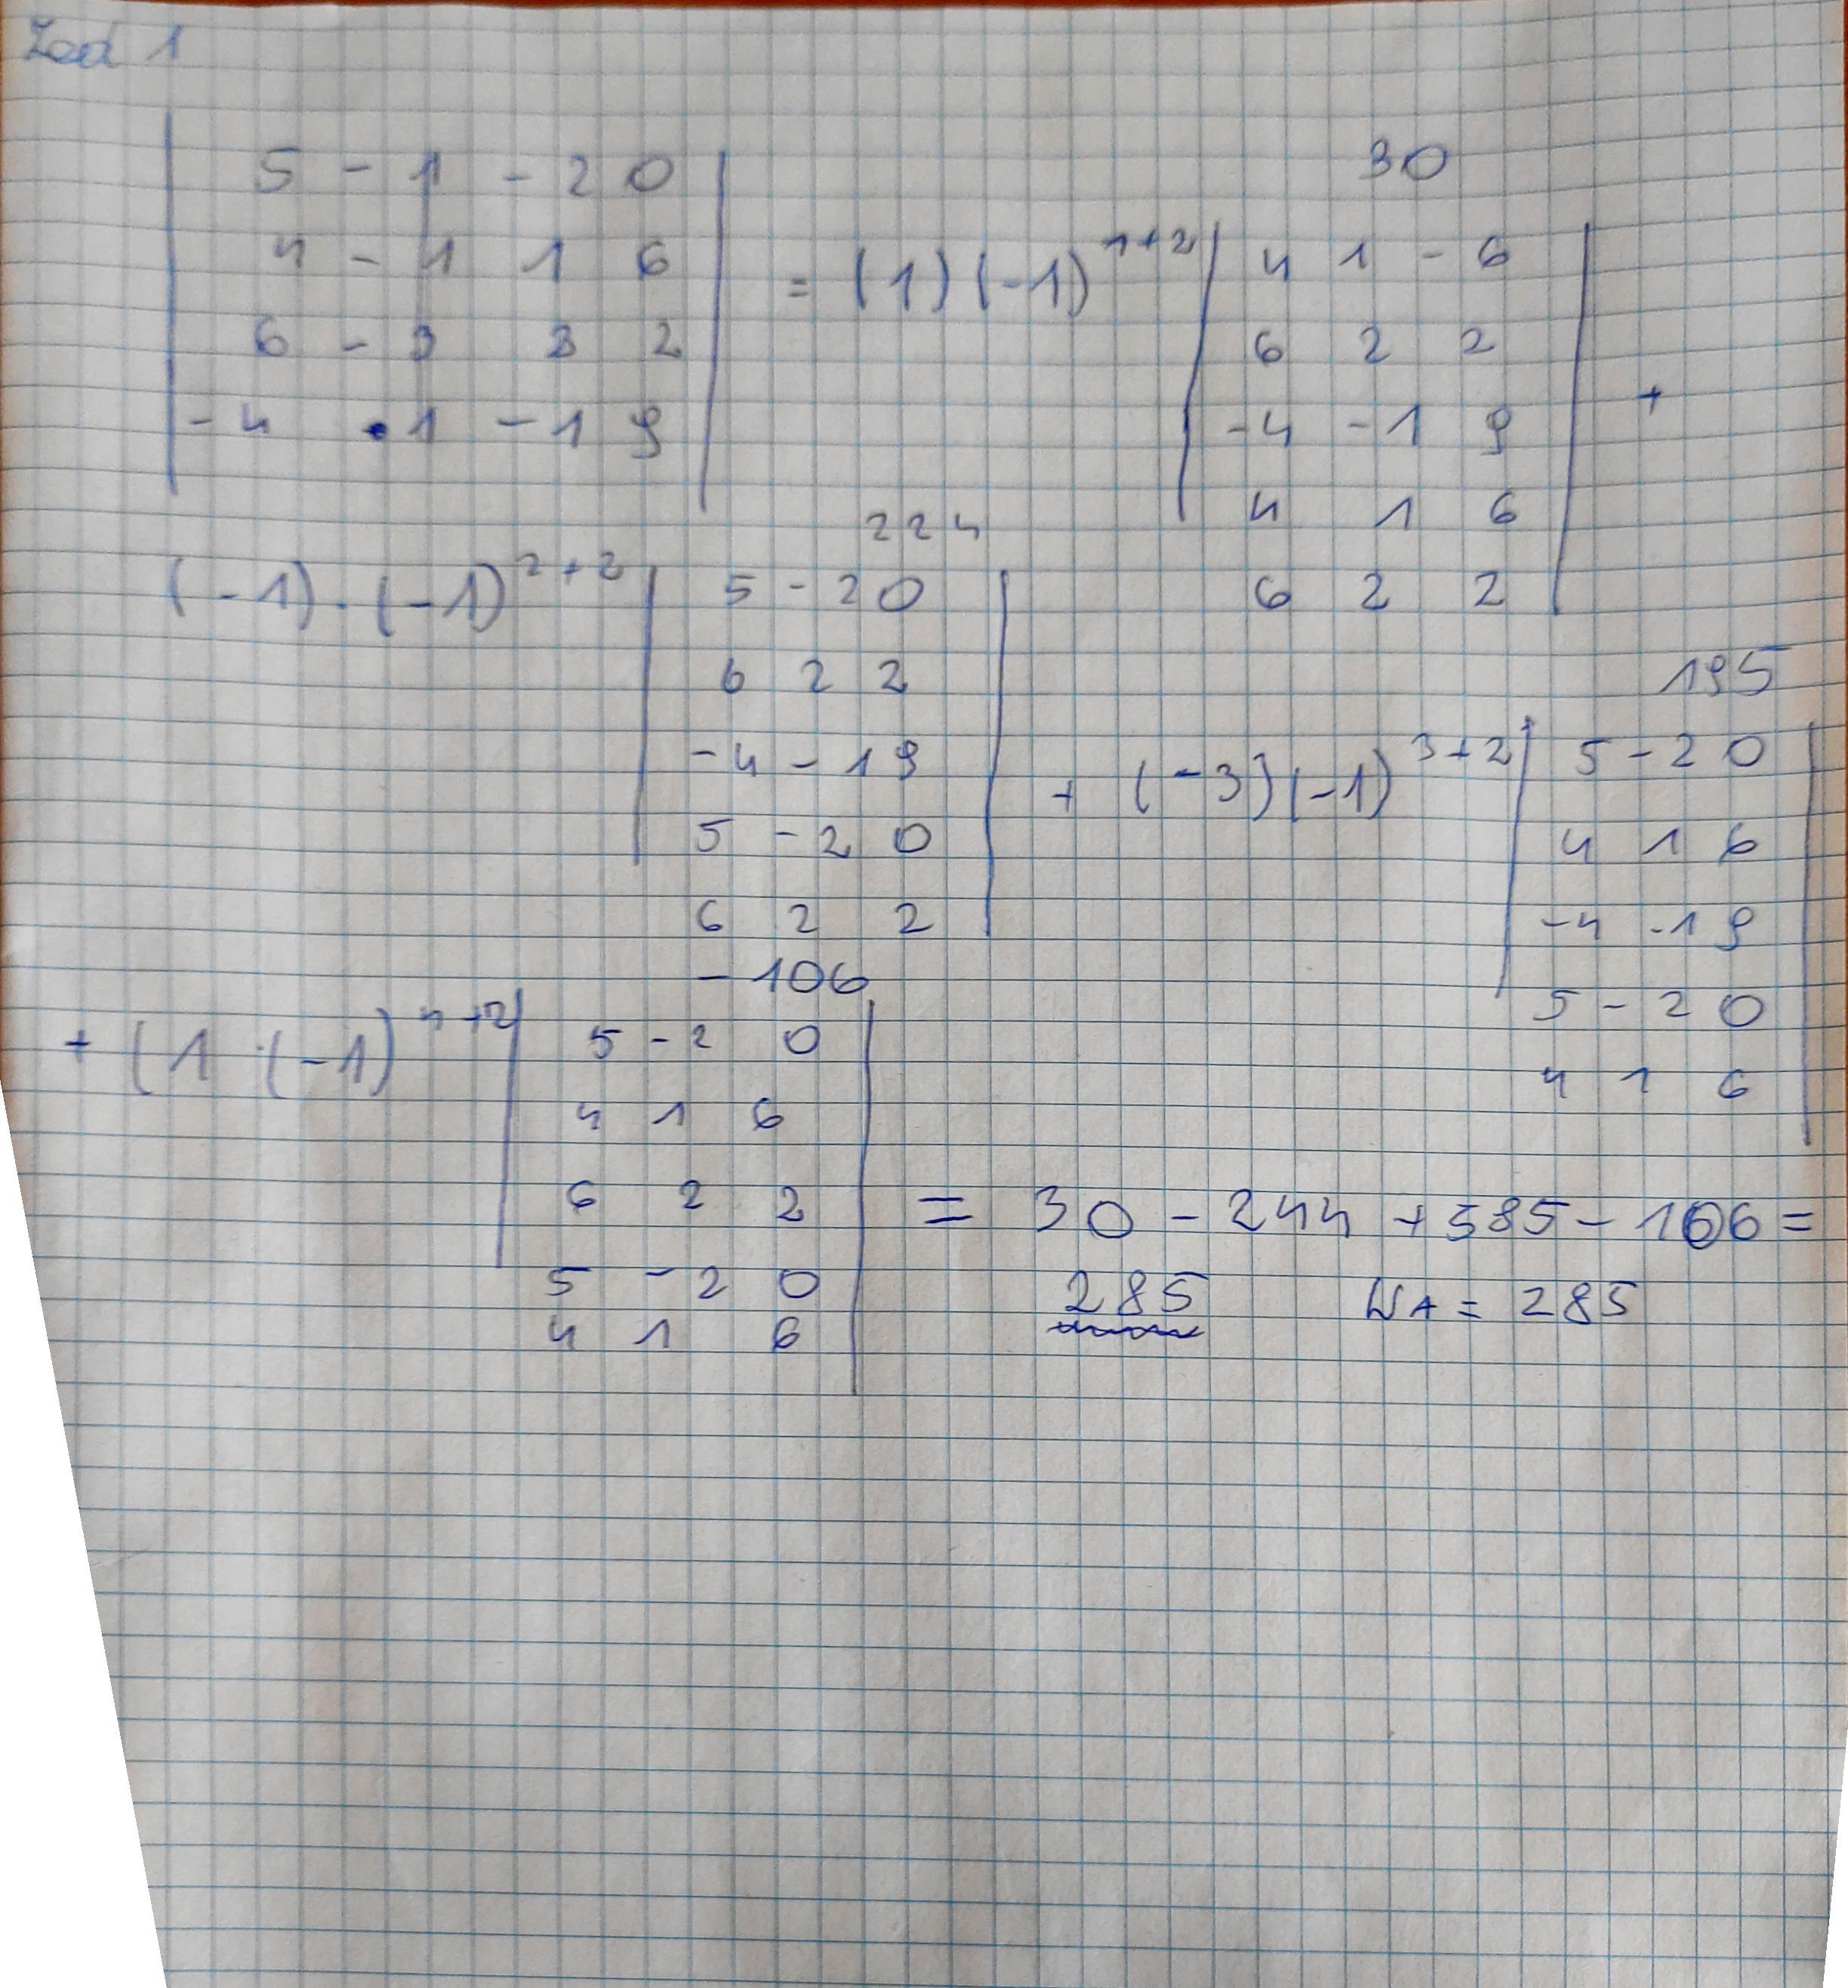 Zad 1
5 -1 -2 0
4 -1 1 6
6 -3 2
-4 1 -1 9
= (1) (-1)^1+2
30
4 1 -6
6 2 2
-4 -1 9
4 1 6
6 2 2
+
(-1) · (-1)^2+2
224
5 -2 0
6 2 2
-4 -1 9
5 -2 0
6 2 2
+ (-3) (-1)^3+2
195
5 -2 0
4 1 6
-4 -1 9
5 -2 0
4 1 6
+ (1 · (-1)^4+2
-106
5 -2 0
4 1 6
6 2 2
5 -2 0
4 1 6
= 30 - 244 + 585 - 106 =
285 WA = 285